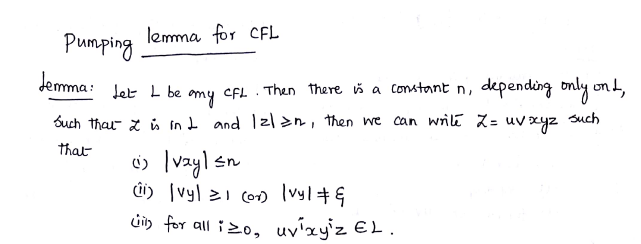 Pumping lemma for CFL
Lemma: Let L be any CFL. Then there is a constant n, depending only on L,
such that z is in L and |z| ≥ n, then we can write z = uvxyz such
that
(i) |vxy| ≤ n
(ii) |vy| ≥ 1 (or) |vy| ≠ ξ
(iii) for all i ≥ 0, uvⁱxyⁱz ∈ L.